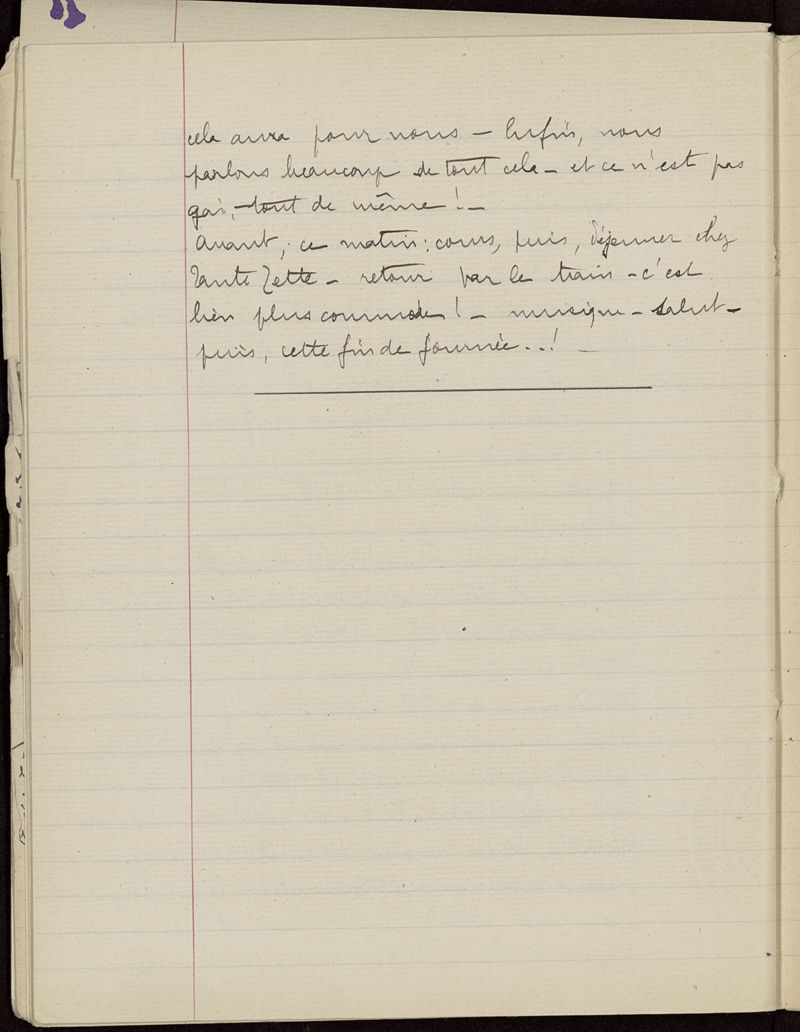 cela aura pour nous – Enfin, nous
parlons beaucoup de tout cela – et ce n'est pas
gai, tout de même ! –
Avant, ce matin : cours, puis, déjeuner chez
Tante Zette – retour par le train – c'est
bien plus commode ! – musique – Salut –
puis, cette fin de journée . . ! –